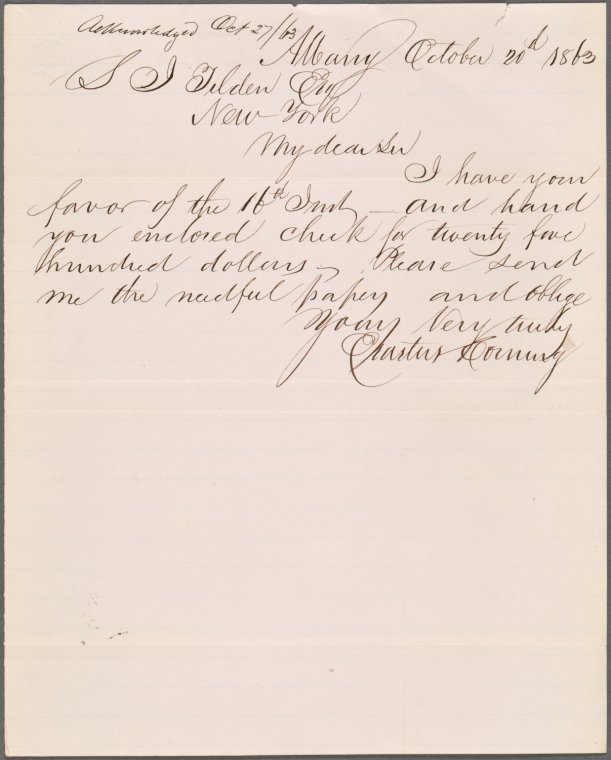 Acknowledged Oct 27/63
Albany October 20d 1863
S J Tilden Esq
New York
My dear Sir
I have your
favor of the 16th Inst — and hand
you enclosed check for twenty five
hundred dollars — Please send
me the needful papers and oblige
Yours Very truly
Erastus Corning